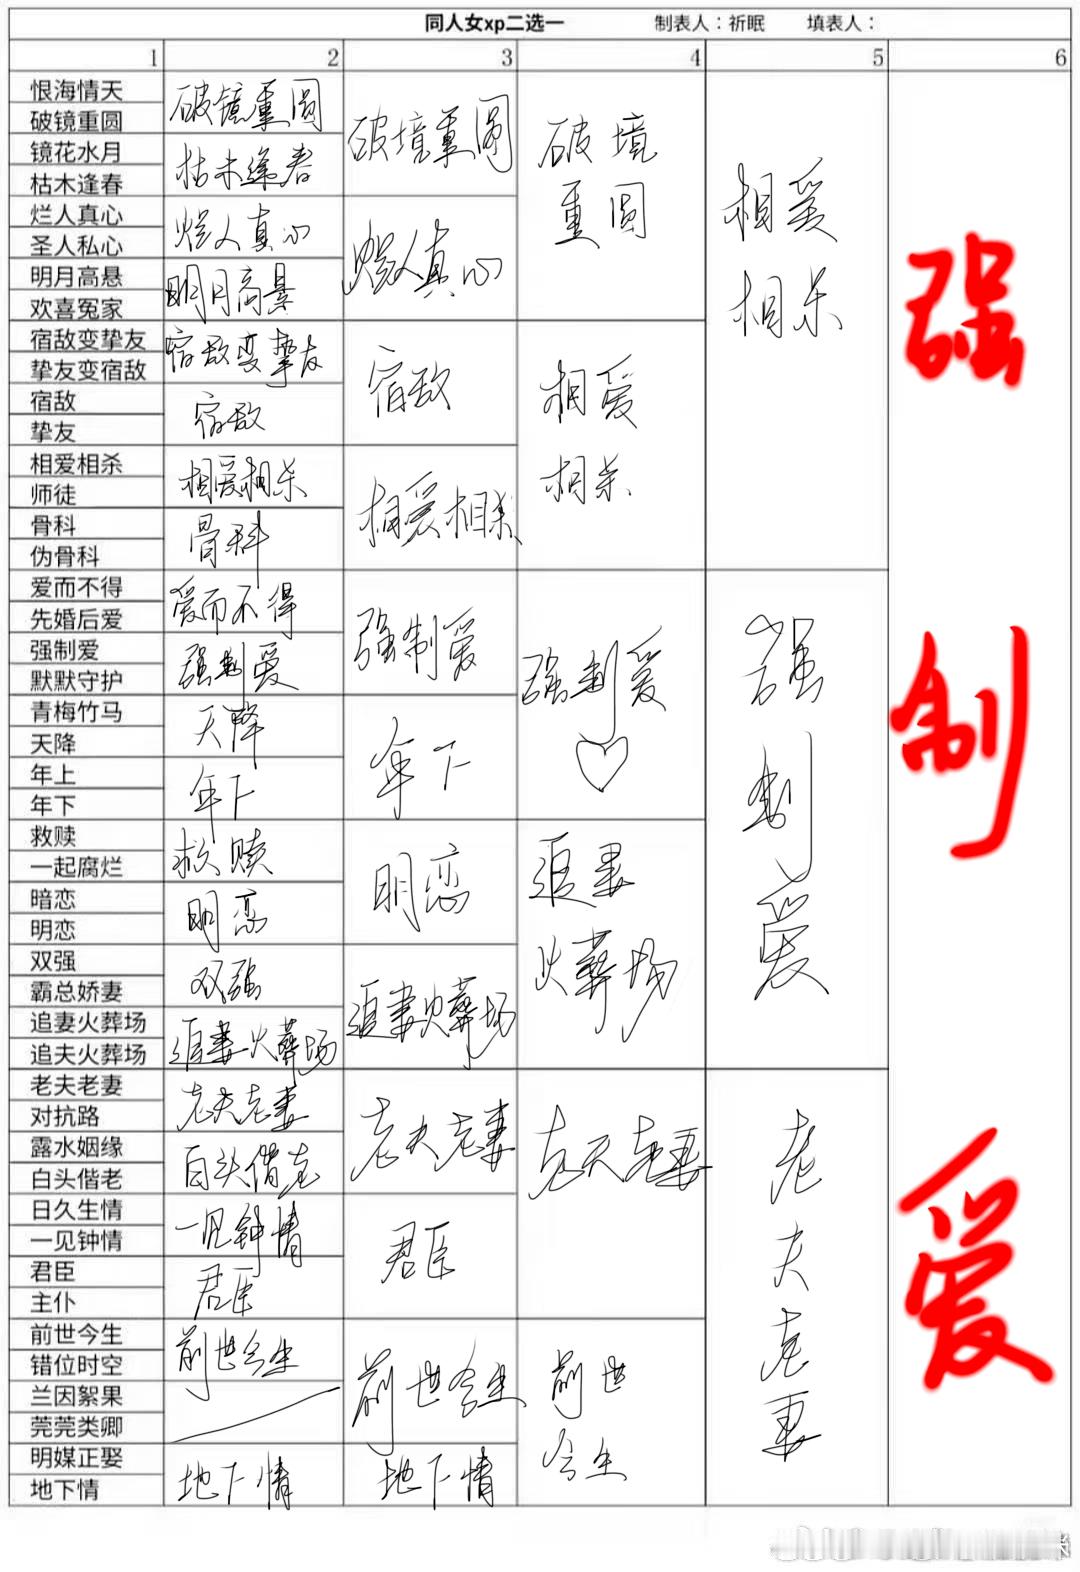 同人女xp二选一 制表人：祈眠 填表人：
1 2 3 4 5 6
恨海情天
破镜重圆
镜花水月
枯木逢春
烂人真心
圣人私心
明月高悬
欢喜冤家
宿敌变挚友
挚友变宿敌
宿敌
挚友
相爱相杀
师徒
骨科
伪骨科
爱而不得
先婚后爱
强制爱
默默守护
青梅竹马
天降
年上
年下
救赎
一起腐烂
暗恋
明恋
双强
霸总娇妻
追妻火葬场
追夫火葬场
老夫老妻
对抗路
露水姻缘
白头偕老
日久生情
一见钟情
君臣
主仆
前世今生
错位时空
兰因絮果
莞莞类卿
明媒正娶
地下情
破镜重圆
枯木逢春
烂人真心
明月高悬
宿敌变挚友
宿敌
相爱相杀
骨科
爱而不得
强制爱
天降
年下
救赎
明恋
双强
追妻火葬场
老夫老妻
白头偕老
一见钟情
君臣
前世今生
地下情
破境重圆
烂人真心
宿敌
相爱相杀
强制爱
年下
明恋
追妻火葬场
老夫老妻
君臣
前世今生
地下情
破境
重圆
相爱
相杀
强制爱
追妻
火葬场
老夫老妻
前世
今生
相爱
相杀
强
制
爱
老
夫
老
妻
强
制
爱